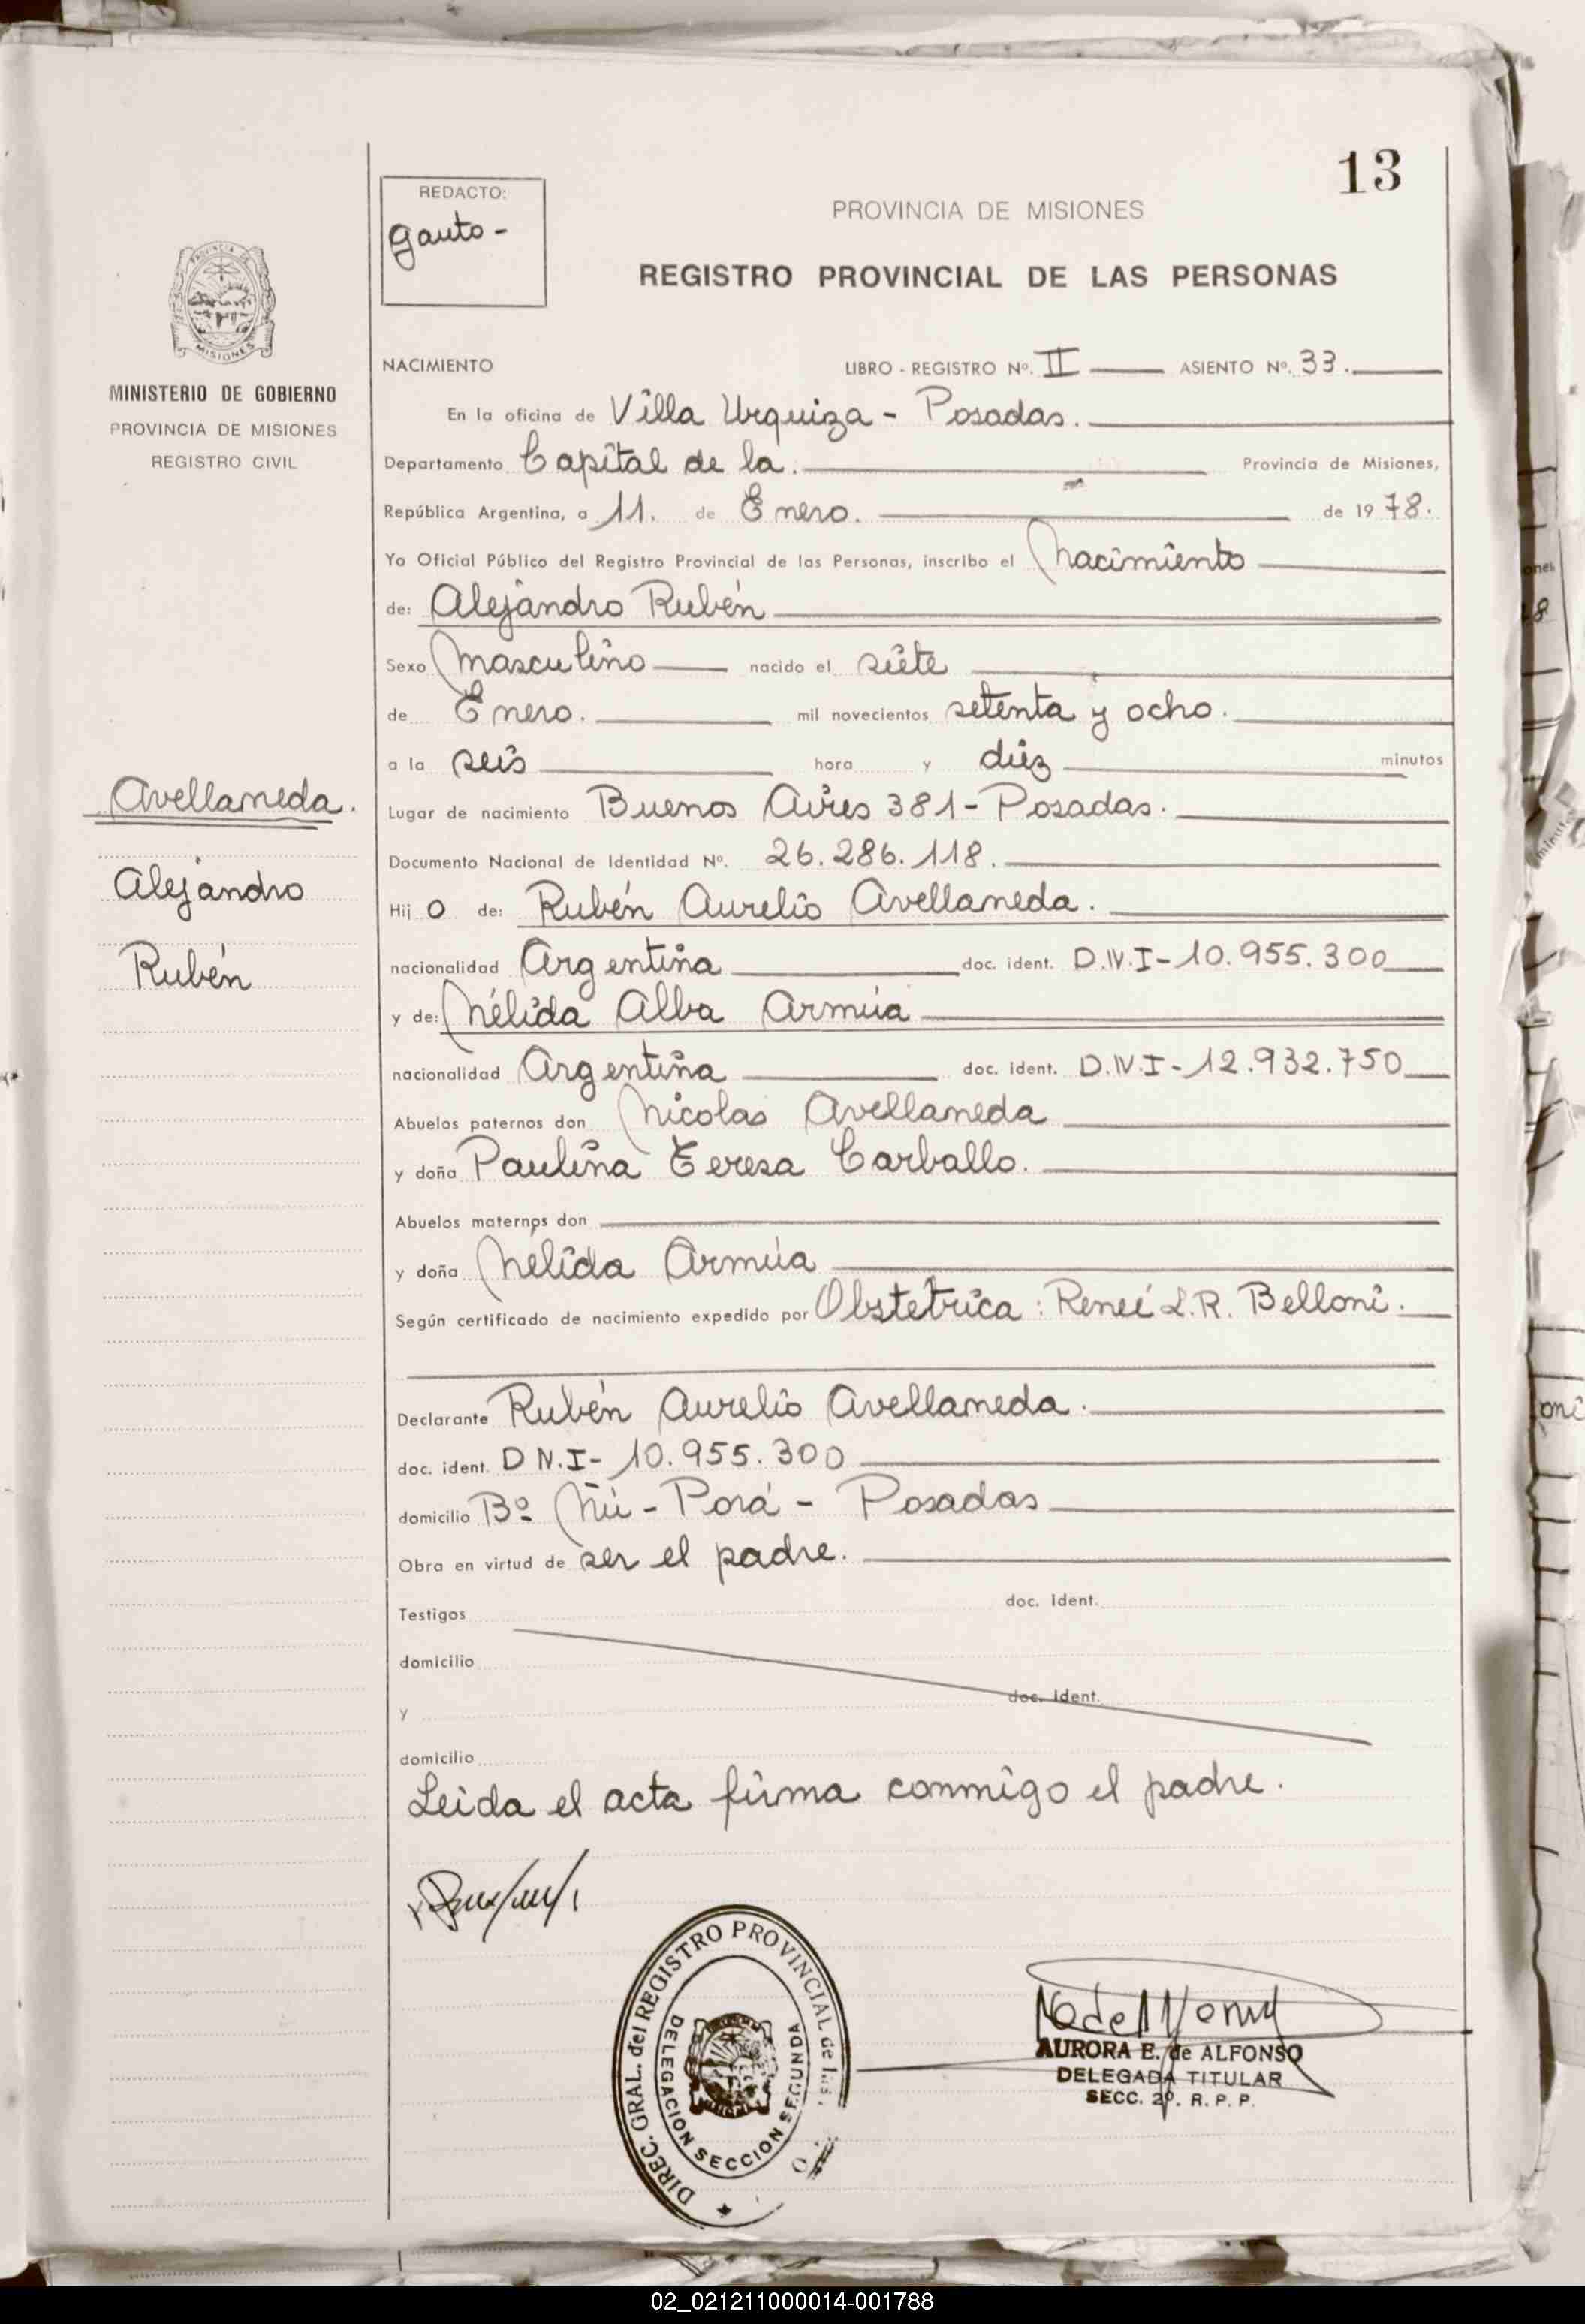 13
REDACTO:
Gauto -
PROVINCIA DE MISIONES
REGISTRO PROVINCIAL DE LAS PERSONAS
MISIONES
MINISTERIO DE GOBIERNO
PROVINCIA DE MISIONES
REGISTRO CIVIL
NACIMIENTO LIBRO - REGISTRO Nº. II ASIENTO Nº. 33.
En la oficina de Villa Urquiza - Posadas.
Departamento Capital de la. Provincia de Misiones,
República Argentina, a 11. de Enero. de 1978.
Yo Oficial Público del Registro Provincial de las Personas, inscribo el Nacimiento
de: Alejandro Rubén
Sexo Masculino nacido el siete
de Enero. mil novecientos setenta y ocho.
a la seis hora y diez minutos
Avellaneda.
Lugar de nacimiento Buenos Aires 381 - Posadas.
Documento Nacional de Identidad Nº. 26.286.118.
Alejandro
Hij o de: Rubén Aurelio Avellaneda.
Rubén
nacionalidad Argentina doc. ident. D.N.I - 10.955.300
y de: Nélida Alba Armúa
nacionalidad Argentina doc. ident. D.N.I - 12.932.750
Abuelos paternos don Nicolas Avellaneda
y doña Paulina Teresa Carballo.
Abuelos maternos don
y doña Nélida Armúa
Según certificado de nacimiento expedido por Obstetrica: Reneé L.R. Belloni.
Declarante Rubén Aurelio Avellaneda.
doc. ident. D N.I - 10.955.300
domicilio Bº Ñú - Porá - Posadas
Obra en virtud de ser el padre.
Testigos doc. Ident.
domicilio
y doc. Ident.
domicilio
Leida el acta firma conmigo el padre.
DIREC. GRAL. del REGISTRO PROVINCIAL de las
DELEGACION SECCION SEGUNDA
AURORA E. de ALFONSO
DELEGADA TITULAR
SECC. 2º. R. P. P.
02_021211000014-001788